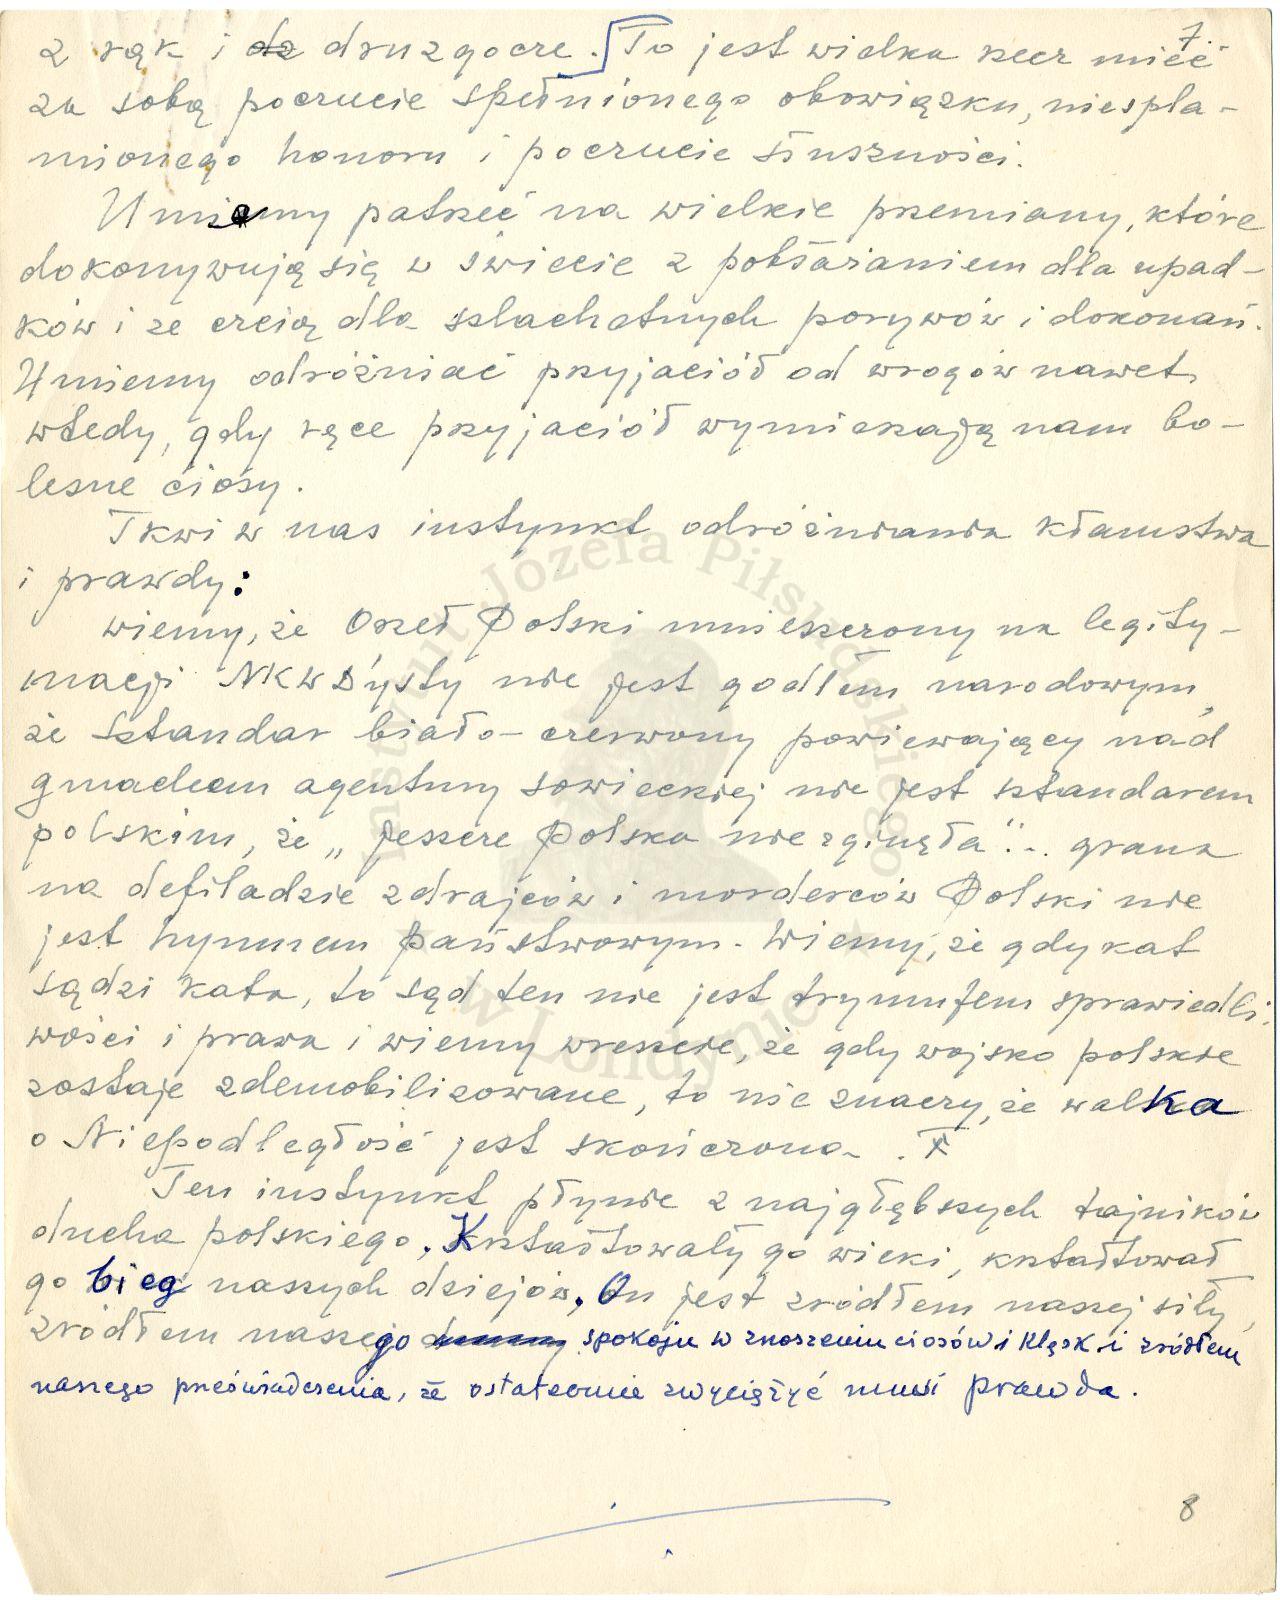 7.
z rąk i druzgocze. To jest wielka rzecz mieć
za sobą poczucie spełnionego obowiązku, niespla-
mionego honoru i poczucie słuszności.
Umiemy patrzeć na wielkie przemiany, które
dokonywują się w świecie z pobłażaniem dla upad-
ków i ze czcią dla szlachetnych porywów i dokonań.
Umiemy odróżniać przyjaciół od wrogów nawet
wtedy, gdy ręce przyjaciół wymierzają nam bo-
lesne ciosy.
Tkwi w nas instynkt odróżniania kłamstwa
i prawdy:
wiemy, że Orzeł Polski umieszczony na legity-
macji NKWDysty nie jest godłem narodowym,
że sztandar biało-czerwony powiewający nad
gmachem agentury sowieckiej nie jest sztandarem
polskim, że „Jeszcze Polska nie zginęła"... grana
na defiladzie zdrajców i morderców Polski nie
jest hymnem państwowym. Wiemy, że gdy kat
sądzi kata, to sąd ten nie jest trymufem sprawiedli-
wości i prawa i wiemy wreszcie, że gdy wojsko polskie
zostaje zdemobilizowane, to nie znaczy, że walka
o Niepodległość jest skończona.
Ten instynkt płynie z najgłębszych tajników
ducha polskiego. Kształtowały go wieki, kształtował
go bieg naszych dziejów. On jest źródłem naszej siły,
źródłem naszego spokoju w znoszeniu ciosów i klęsk i źródłem
naszego przeświadczenia, że ostatecznie zwyciężyć musi prawda.
8
Instytut Józefa Piłsudskiego
w Londynie